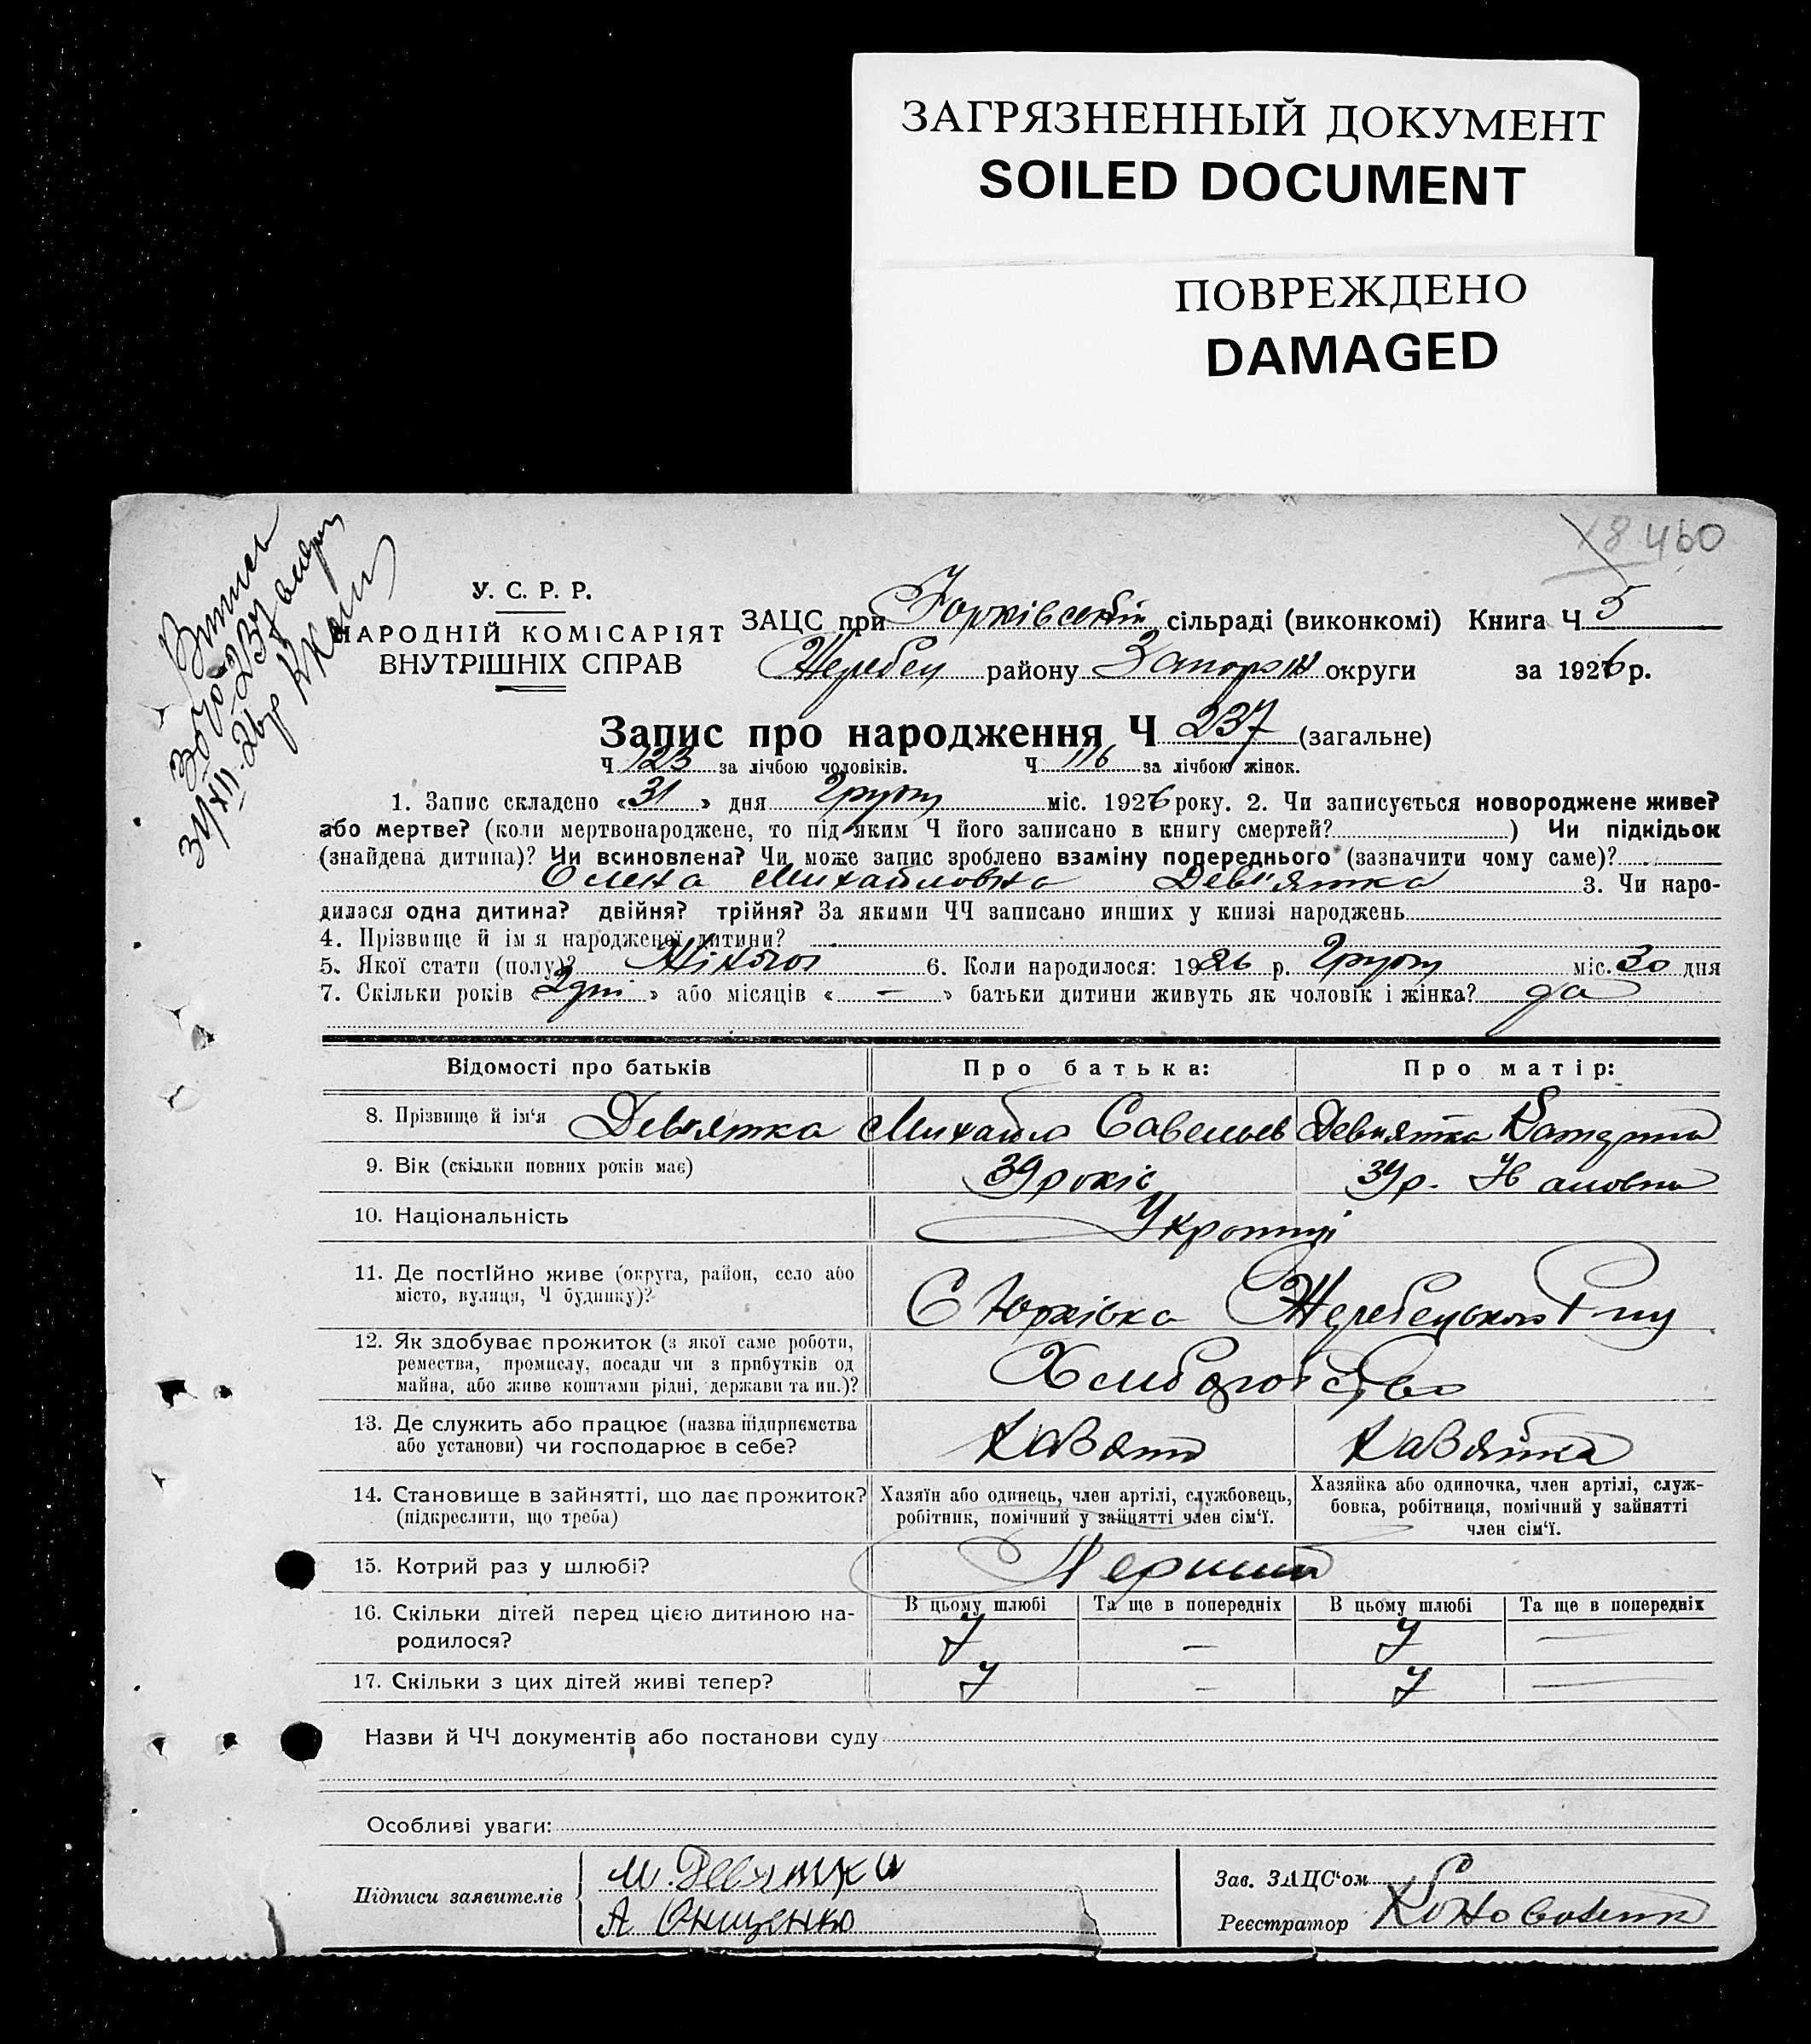 ЗАГРЯЗНЕННЫЙ ДОКУМЕНТ
SOILED DOCUMENT
ПОВРЕЖДЕНО
DAMAGED
460
У. С. Р. Р.
НАРОДНІЙ КОМІСАРІЯТ
ВНУТРІШНІХ СПРАВ
ЗАЦС при Юрківській сільраді (виконкомі) Книга Ч 5
Жеребец району Запоріж округи за 1926 р.
Запис про народження Ч 237 (загальне)
Ч 123 за лічбою чоловіків. Ч 116 за лічбою жінок.
1. Запис складено «31» дня Грудня міс. 1926 року. 2. Чи записується новороджене живе?
або мертве? (коли мертвонароджене, то під яким Ч його записано в книгу смертей? ) Чи підкідьок
(знайдена дитина)? Чи всиновлена? Чи може запис зроблено взаміну попереднього (зазначити чому саме)?
Олена Михайловна Дев'ятка 3. Чи наро-
дилася одна дитина? двійня? трійня? За якими ЧЧ записано инших у книзі народжень
4. Прізвище й ім'я народженої дитини?
5. Якої стати (полу)? Жіночої 6. Коли народилося: 1926 р. Грудня міс. 30 дня
7. Скільки років « » або місяців « – » батьки дитини живуть як чоловік і жінка? да
Відомості про батьків Про батька: Про матір:
8. Прізвище й ім'я Дев'ятка Михайло Савельев Дев'ятка Катерина
9. Вік (скільки повних років має) 39 років 39 р.
10. Національність Українці
11. Де постійно живе (округа, район, село або
місто, вулиця, Ч будинку)? С Юрківка Жеребецького Р-ну
12. Як здобуває прожиток (з якої саме роботи,
ремества, промислу, посади чи з прибутків од
майна, або живе коштами рідні, держави та ин.)? Хліборобство
13. Де служить або працює (назва підприємства
або установи) чи господарює в себе?
14. Становище в зайнятті, що дає прожиток?
(підкреслити, що треба)
Хазяїн або одинець, член артілі, службовець,
робітник, помічний у зайнятті член сім'ї.
Хазяйка або одиночка, член артілі, служ-
бовка, робітниця, помічний у зайнятті
член сім'ї.
15. Котрий раз у шлюбі? Перший
16. Скільки дітей перед цією дитиною на-
родилося?
В цьому шлюбі Та ще в попередніх В цьому шлюбі Та ще в попередніх
7 – 7 –
17. Скільки з цих дітей живі тепер? 7 – 7 –
Назви й ЧЧ документів або постанови суду
Особливі уваги:
Підписи заявителів
М. Девятка
А Онищенко
Зав. ЗАЦС'ом
Реєстратор